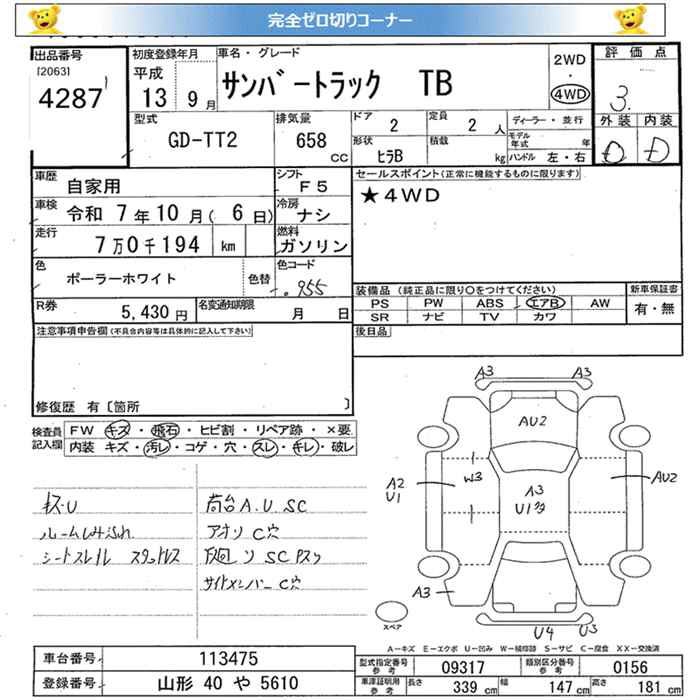 完全ゼロ切りコーナー
出品番号 [2063] 4287
初度登録年月 平成 13 9月
車名・グレード サンバートラック TB
2WD ・ 4WD
評価点 3.
外装 D 内装 D
型式 GD-TT2
排気量 658 cc
ドア 2
定員 2 人
形状 ヒラB
積載 kg
ディーラー・並行
モデル年式 年
ハンドル 左・右
車歴 自家用
シフト F5
車検 令和 7年10月( 6日)
冷房 ナシ
走行 7万0千194 km
燃料 ガソリン
色 ポーラーホワイト 色替
色コード 955
R券 5,430 円
名変通知期限 月 日
セールスポイント(正常に機能するものに限ります)
★4WD
装備品 (純正品に限り○をつけてください)
PS PW ABS エアB AW
SR ナビ TV カワ
新車保証書 有・無
後日品
注意事項申告欄(不具合内容等は具体的に記入して下さい)
修復歴 有〔箇所 〕
検査員記入欄
FW キズ・飛石・ヒビ割・リペア跡・×要
内装 キズ・汚レ・コゲ・穴・スレ・キレ・破レ
キズ・U
ルームしみ汚れ
シートスレ
荷台A.U SC
アオリ C穴
サイドメンバー C穴
A3 A3
AU2
A2
U1
W3
A3
U1
AU2
A3
U4 U3
スペア
A-キズ E-エクボ U-凹み W-補修跡 S-サビ C-腐食 XX-交換済
車台番号 113475
登録番号 山形 40 や 5610
型式指定番号 参考 09317
類別区分番号 参考 0156
車庫証明用 参考 長さ 339 cm 幅 147 cm 高さ 181 cm